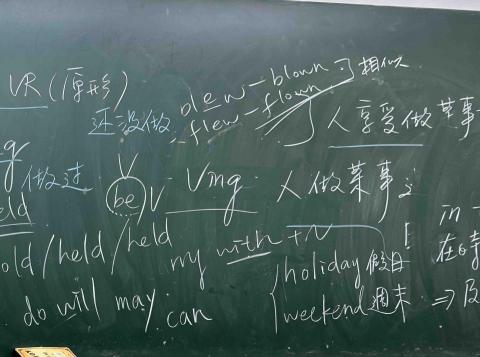 VR(原形)
还没做
blew-blown
flew-flown
相似
人享受做某事
做过
V
be V - Ving
人做某事
old/held/held
with +N
holiday 假日
weekend 週末
do will may can
in